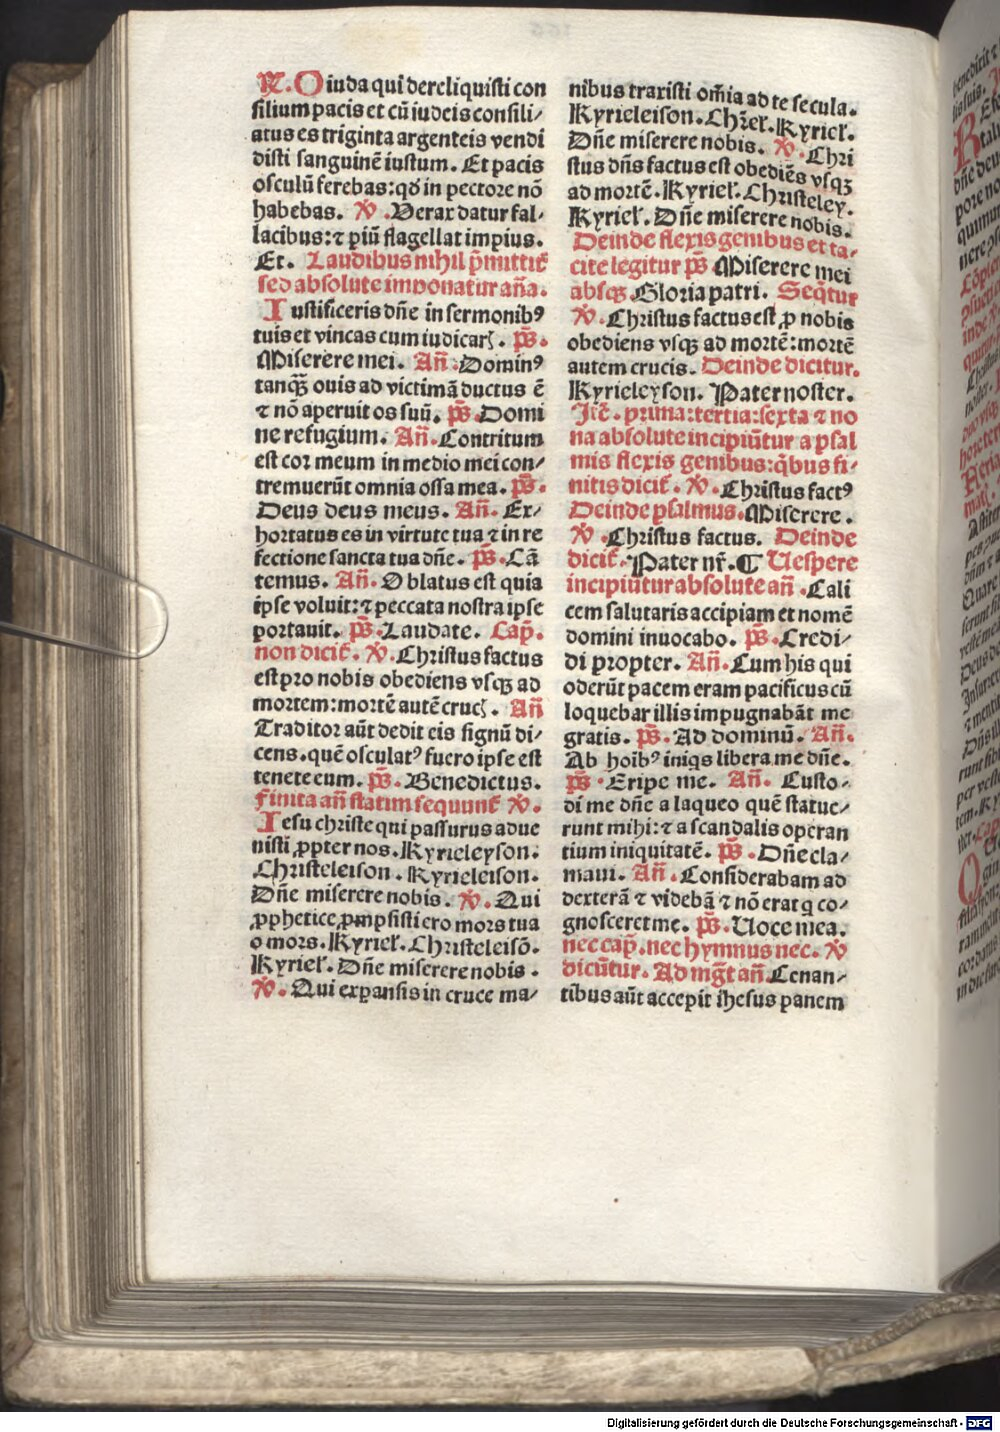 R. O iuda qui dereliquisti con
silium pacis et cū iudeis consili/
atus es triginta argenteis vendi
disti sanguinē iustum. Et pacis
osculū ferebas: qđ in pectore nō
habebas. ℣. Verax datur fal/
lacibus: ⁊ piū flagellat impius.
Et. Laudibus nihil p̄mittit᷑
sed absolute imponatur aña.
Iustificeris dñe in sermonib⁹
tuis et vincas cum iudicarꝭ. p̄s.
Miserere mei. Añ. Domin⁹
tanqꝫ ouis ad victimā ductus ē
⁊ nō aperuit os suū. p̄s. Domi
ne refugium. Añ. Contritum
est cor meum in medio mei con/
tremuerūt omnia ossa mea. p̄s.
Deus deus meus. Añ. Ex/
hortatus es in virtute tua ⁊ in re
fectione sancta tua dñe. p̄s. Cā
temus. Añ. Oblatus est quia
ipse voluit: ⁊ peccata nostra ipse
portauit. p̄s. Laudate. Cap̄.
non dicit᷑. ℣. Christus factus
est pro nobis obediens vsqꝫ ad
mortem: mortē autē crucꝭ. Añ
Traditor aūt dedit eis signū di/
cens. quē osculat⁹ fuero ipse est
tenete eum. p̄s. Benedictus.
Finita añ statim sequunt᷑ ℣.
Iesu christe qui passurus adue
nisti ꝓpter nos. Kyrieleyson.
Christeleison. Kyrieleison.
Dñe miserere nobis. ℣. Qui
ꝓphetice ꝓmpsisti ero mors tua
o mors. Kyriel̓. Christeleisō.
Kyriel̓. Dñe miserere nobis.
℣. Qui expansis in cruce ma/
nibus traxisti om̄ia ad te secula.
Kyrieleison. Chr̄el̓. Kyriel̓.
Dñe miserere nobis. ℣. Chri
stus dñs factus est obediēs vsqꝫ
ad mortē. Kyriel̓. Christeley.
Kyriel̓. Dñe miserere nobis.
Deinde flexis genibus et ta/
cite legitur p̄s Miserere mei
absqꝫ Gloria patri. Seq̄tur
℣. Christus factus est ꝓ nobis
obediens vsqꝫ ad mortē: mortē
autem crucis. Deinde dicitur.
Kyrieleyson. Pater noster.
Itē. prima: tertia: sexta ⁊ no
na absolute incipiūtur a psal
mis flexis genibus: q̄bus fi/
nitis dicit᷑. ℣. Christus fact⁹
Deinde psalmus. Miserere.
℣. Christus factus. Deinde
dicit᷑. Pater nr̄. ¶ Uespere
incipiūtur absolute añ. Cali
cem salutaris accipiam et nomē
domini inuocabo. p̄s. Credi/
di propter. Añ. Cum his qui
oderūt pacem eram pacificus cū
loquebar illis impugnabāt me
gratis. p̄s. Ad dominū. Añ.
Ab hoīb⁹ iniqs libera me dñe.
p̄s. Eripe me. Añ. Custo/
di me dñe a laqueo quē statue/
runt mihi: ⁊ a scandalis operan
tium iniquitatē. p̄s. Dñe cla/
maui. Añ. Considerabam ad
dexterā ⁊ videbā ⁊ nō erat q co/
gnosceret me. p̄s. Uoce mea.
nec cap̄. nec hymnus nec. ℣
dicūtur. Ad mg̅t añ Cenan/
tibus aūt accepit ihesus panem
Digitalisierung gefördert durch die Deutsche Forschungsgemeinschaft - DFG